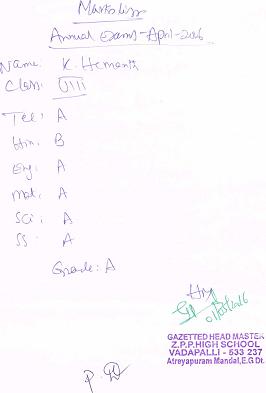 Marks list
Annual Exams - April - 2016
Name: K. Hemanth
Class: VIII
Tel: A
Hin: B
Eng: A
Mat: A
Sci: A
SS: A
Grade: A
GAZETTED HEAD MASTER
Z.P.P.HIGH SCHOOL
VADAPALLI - 533 237
Atreyapuram Mandal,E.G Dt.